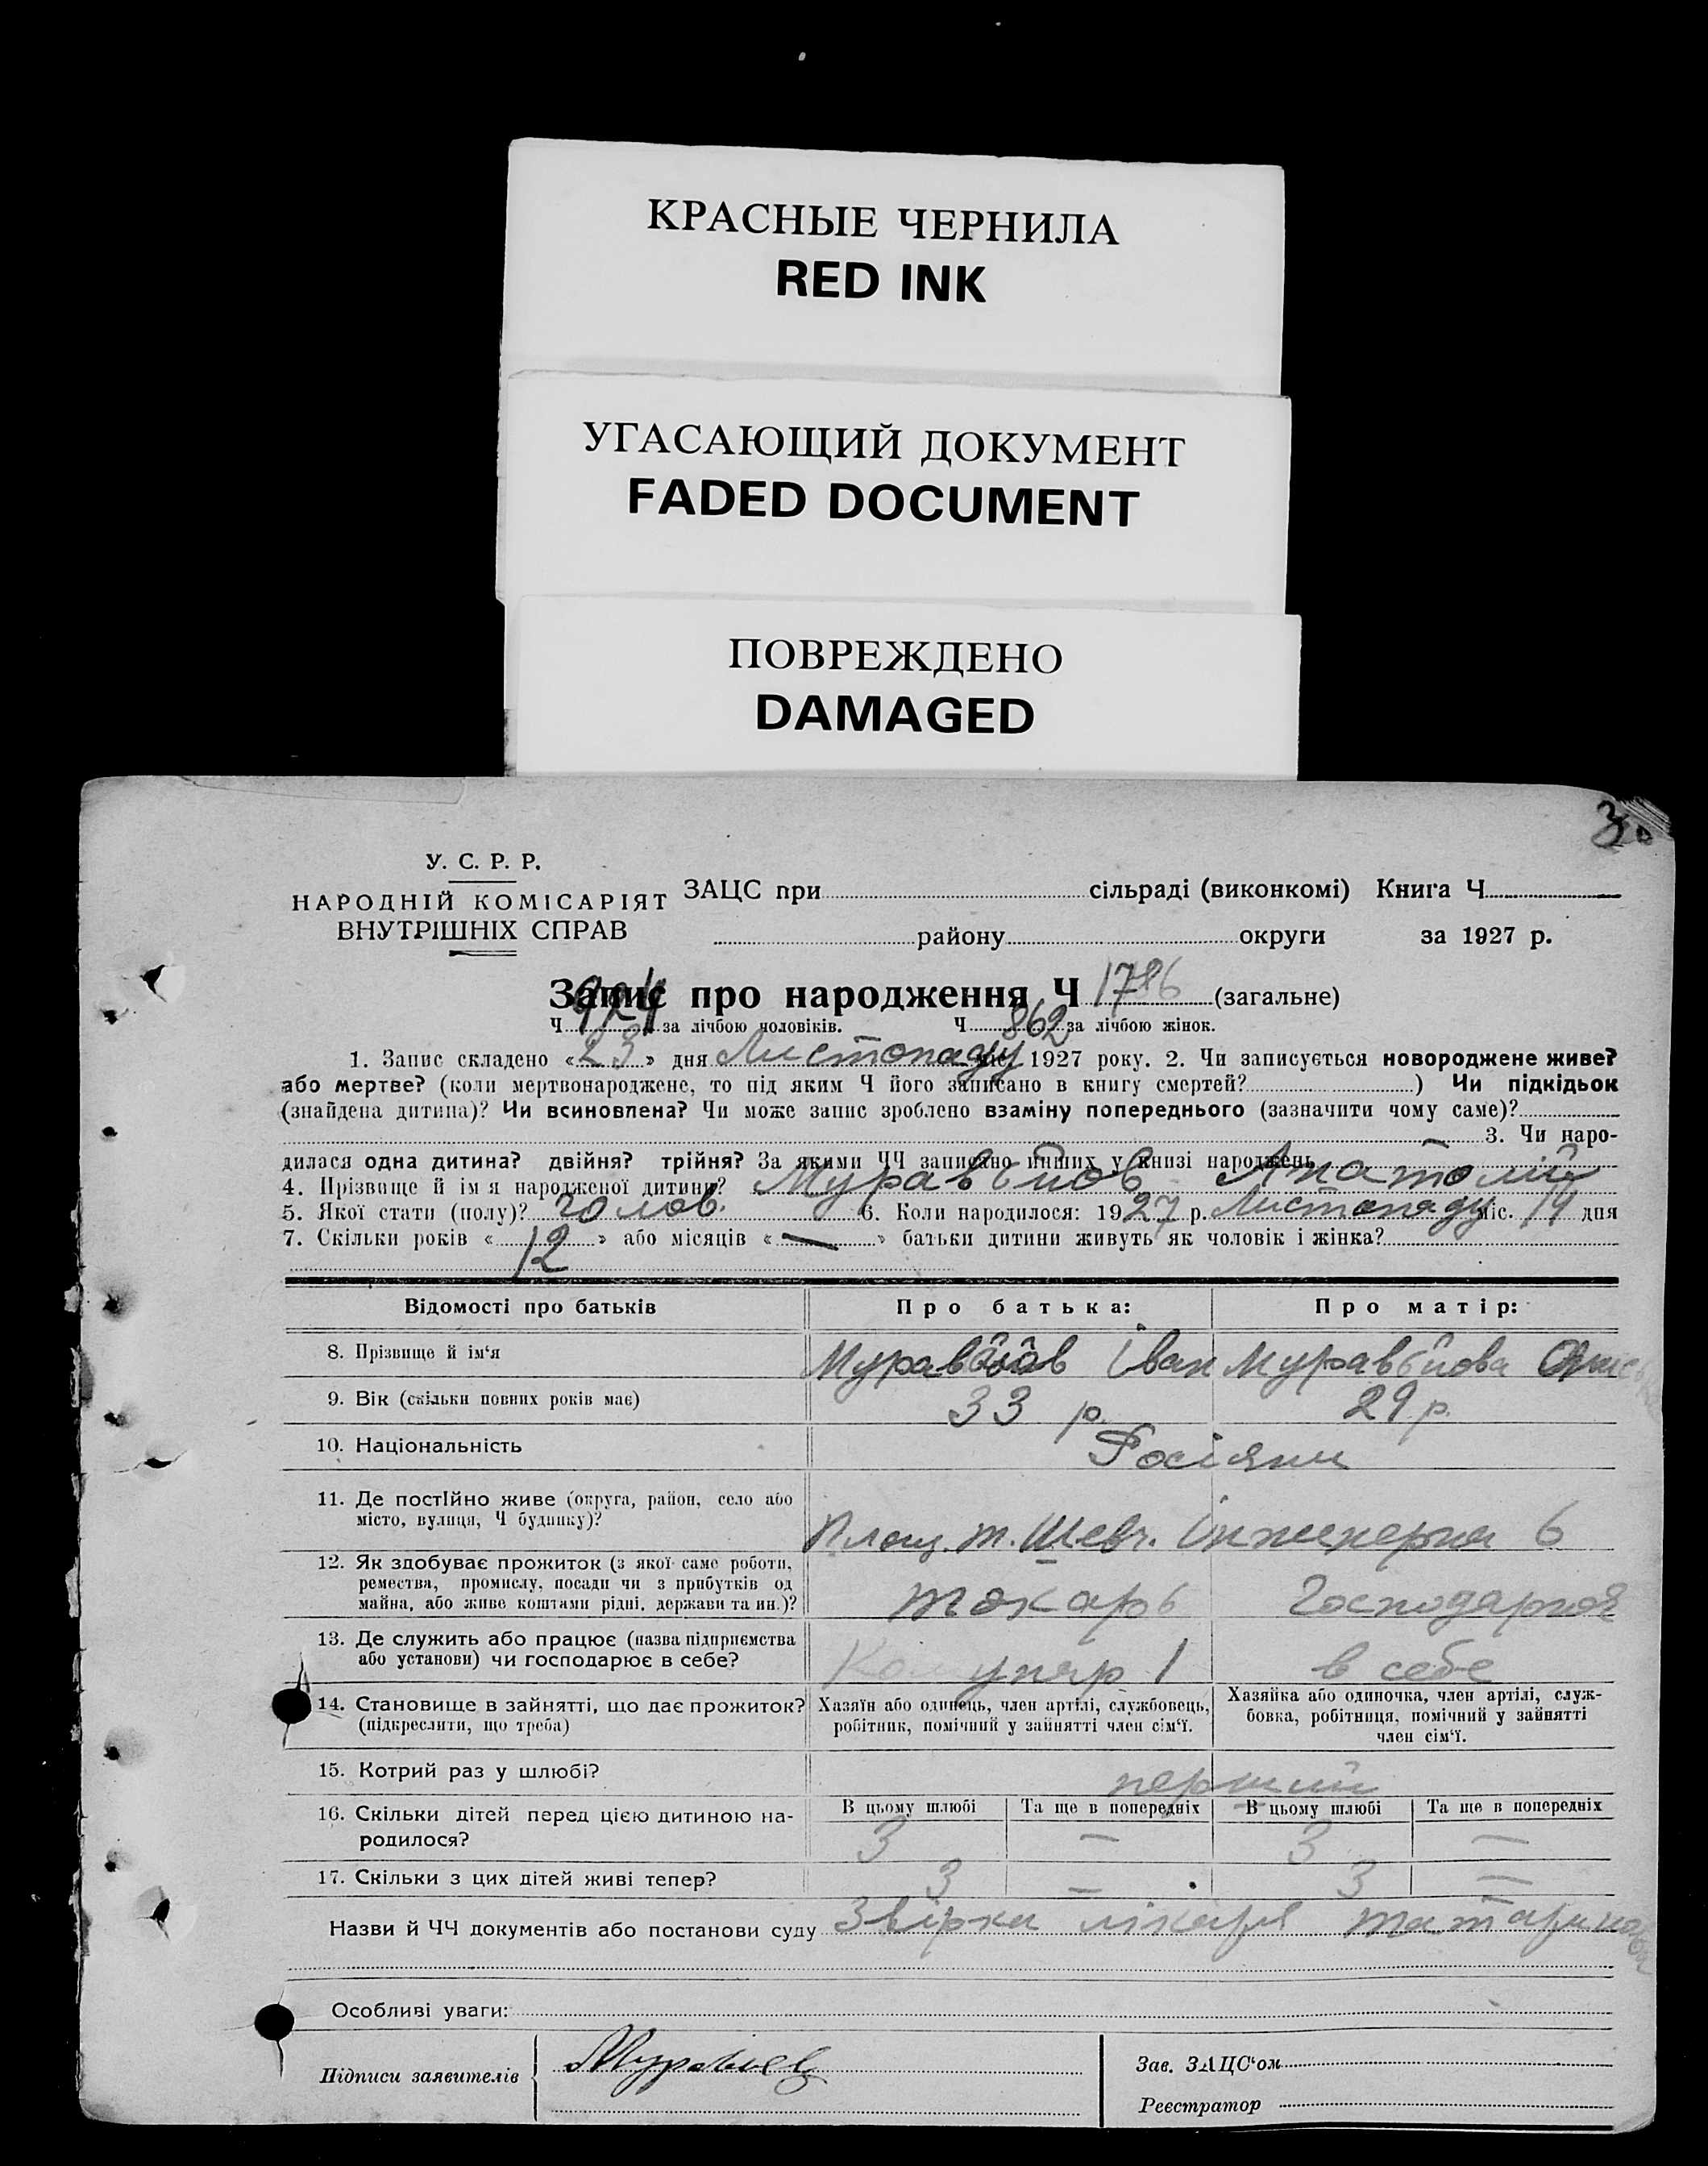 КРАСНЫЕ ЧЕРНИЛА
RED INK
УГАСАЮЩИЙ ДОКУМЕНТ
FADED DOCUMENT
ПОВРЕЖДЕНО
DAMAGED
У. С. Р. Р.
НАРОДНІЙ КОМІСАРІЯТ
ВНУТРІШНІХ СПРАВ
ЗАЦС при сільраді (виконкомі) Книга Ч
району округи за 1927 р.
Запис про народження Ч 1786 (загальне)
Ч 924 за лічбою чоловіків. Ч 862 за лічбою жінок.
1. Запис складено «23» дня Листопаду міс. 1927 року. 2. Чи записується новороджене живе?
або мертве? (коли мертвонароджене, то під яким Ч його записано в книгу смертей? ) Чи підкідьок
(знайдена дитина)? Чи всиновлена? Чи може запис зроблено взаміну попереднього (зазначити чому саме)?
3. Чи наро-
дилася одна дитина? двійня? трійня? За якими ЧЧ записано инших у книзі народжень
4. Прізвище й ім я народженої дитини? Муравьйов Анатолій
5. Якої стати (полу)? чолов. 6. Коли народилося: 1927 р. Листопаду міс. 14 дня
7. Скільки років «12» або місяців «—» батьки дитини живуть як чоловік і жінка?
Відомості про батьків Про батька: Про матір:
8. Прізвище й ім‘я Іван Муравьйова
9. Вік (скільки повних років має) 33 р. 29 р.
10. Національність Росіяни
11. Де постІйно живе (округа, район, село або
місто, вулиця, Ч будинку)? Площ. т. Шевч. Інженерна 6
12. Як здобуває прожиток (з якої саме роботи,
ремества, промислу, посади чи з прибутків од
майна, або живе коштами рідні, держави та ин.)? токарь Господарює
13. Де служить або працює (назва підприємства
або установи) чи господарює в себе? Комунар 1 в себе
14. Становище в зайнятті, що дає прожиток?
(підкреслити, що треба)
Хазяїн або одинець, член артілі, службовець,
робітник, помічний у зайнятті член сім‘ї.
Хазяйка або одиночка, член артілі, служ-
бовка, робітниця, помічний у зайнятті
член сім‘ї.
15. Котрий раз у шлюбі? перший
В цьому шлюбі Та ще в попередніх В цьому шлюбі Та ще в попередніх
16. Скільки дітей перед цією дитиною на-
родилося? 3 — 3 —
17. Скільки з цих дітей живі тепер? 3 — 3 —
Назви й ЧЧ документів або постанови суду лікаря
Особливі уваги:
Підписи заявителів
Зав. ЗАЦС‘ом
Реєстратор